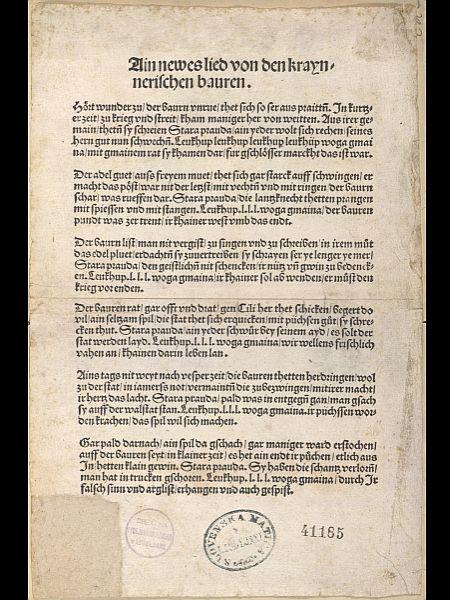 Ain newes lied von den krayn-
nerischen bauren.
Hört wunder zu/ der baurn vnrue/ thet sich so ser auspraittn. In kurtz-
er zeit/ zu krieg vnd streit/ kham maniger her von weitten. Aus irer ge-
main/ thetn sy schreien Stara prauda/ ain yeder wolt sich rechen/ seines
hern gut nun schwechn. Leukhup leukhup leukhup leukhup woga gmai
na/ mit gmainem rat sy khamen dar/ fur gschlösser marckht das ist war.
Der adel guet/ auß freyem muet/ thet sich gar starck auff schwingen/ er
macht das pöst/ war nit der letzst/ mit vechtn vnd mit ringen/ der baurn
schar/ was rueffen dar. Stara prauda/ die lantzknecht thetten prangen
mit spiessen vnd mit stangen. Leukhup.l.l.l. woga gmaina/ der bauren
pundt was zer trent/ ir khainer west vmb das endt.
Der baurn list/ man nit vergist/ zu singen vnd zu schreiben/ in irem mut
das edel pluet/ erdachtn sy zuuertreiben/ sy schrayen ser ye lenger ye mer/
Stara prauda/ den geistlichn nit schencken/ ir nütz vn gwin zu bedenck-
en. Leukhup.l.l.l. woga gmaina/ ir khainer sol ab wenden/ er müst den
krieg vorenden.
Der bauren rat/ gar offt vnd drat/ gen Cili her thet schicken/ begert do
vil/ ain seltzam spil/ die stat thet sich erquicken/ mit püchsen gut/ sy schre-
cken thut. Stara prauda/ ain yeder schwur bey seinem ayd/ es solt der
stat werden layd. Leukhup.l.l.l. woga gmaina/ wir wellens frischlich
vahen an/ khainen darin leben lan.
Ains tags nit weyt/ nach vesper zeit/ die bauren thetten herdringen/ wol
zu der stat/ in iamers not/ vermaintn die zu bezwingen/ mitirer macht/
ir hertz das lacht. Stara prauda/ pald was in entgegn gan/ man gsach
sy auff der walstat stan. Leukhup.l.l.l. woga gmaina. ir püchssen wor-
den krachen/ das spil wil sich machen.
Gar pald darnach/ ain spil da gschach/ gar maniger ward erstochen/
auff der bauren seyt/ in klainer zeit/ es het ain endt ir püchen/ etlich aus
In hetten klain gewin. Stara prauda. Sy haben die schantz verlorn/
man hat in trucken gschoren. Leukhup.l.l.l. woga gmaina/ durch Ir
falsch sinn vnd arglist/ erhangen vnd auch gespist.
SLOVENSKA MATICA
41185